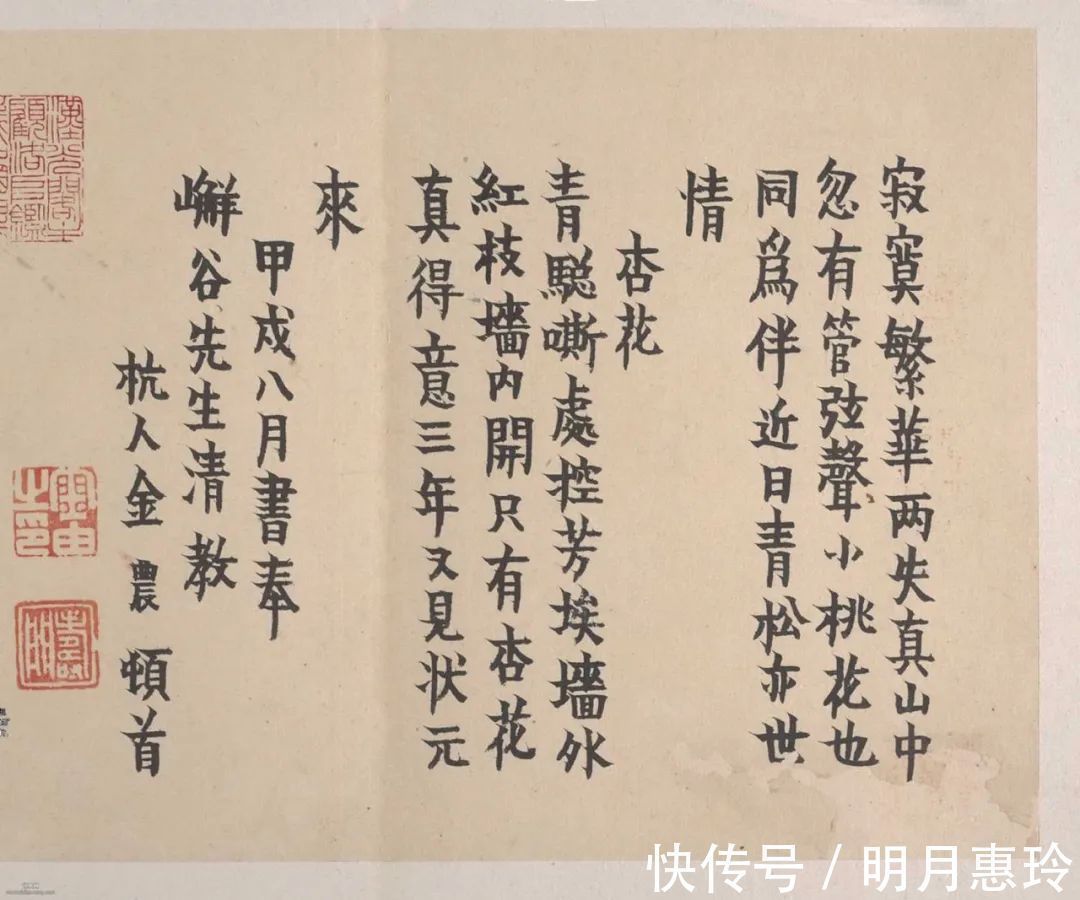 寂寞繁華两失真山中
忽有管弦聲小桃花也
同為伴近日青松亦世
情
杏花
青驄嘶處控芳埃墻外
紅枝墻内開只有杏花
真得意三年又見状元
來
甲戌八月書奉
嶰谷先生清教
杭人金農頓首
快传号 / 明月惠玲